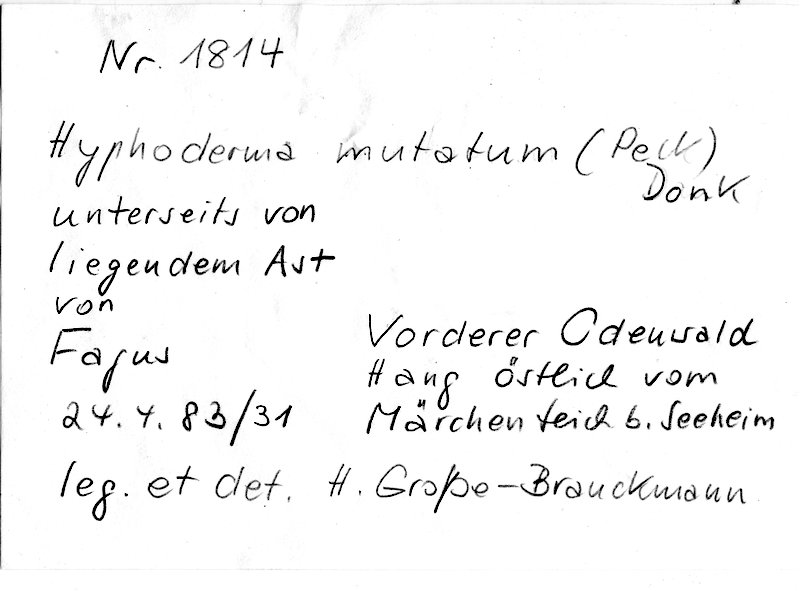 Nr. 1814
Hyphoderma mutatum (Peck)
Donk
unterseits von
liegendem Ast
von
Fagus
24. 4. 83/31
Vorderer Odenwald
Hang östlich vom
Märchenteich b. Seeheim
leg. et det. H. Große-Brauckmann